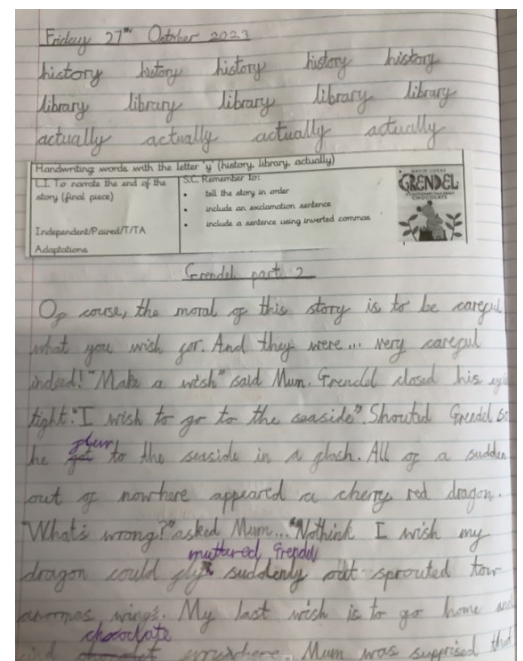 Friday 27th October 2023
history history history history history
library library library library library
actually actually actually actually
Handwriting: words with the letter 'y' (history, library, actually)
L.I. To narrate the end of the story (final piece)
Independent/Paired/T/TA
Adaptations
S.C. Remember to:
• tell the story in order
• include an exclamation sentence
• include a sentence using inverted commas
GRENDEL
CHOCOLATE
Grendel part 2
Of couse, the moral of this story is to be careful
what you wish for. And they were... very careful
indeed! "Make a wish" said Mum. Grendel closed his
tight. "I wish to go to the seaside". Shouted Grendel so
he flew to the seaside in a flash. All of a sudden
out of nowhere appeared a cherry red dragon.
"What's wrong?" asked Mum... "Nothink I wish my
muttered Grendel
dragon could fly" suddenly out sprouted tow
anormas wings. My last wish is to go home
chocolate
Mum was supprised that